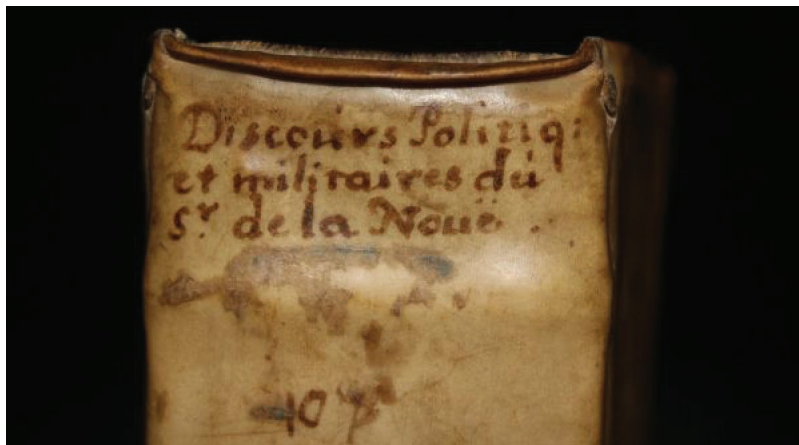 Discours Politiq:
et militaires du
Sr. de la Nouë.